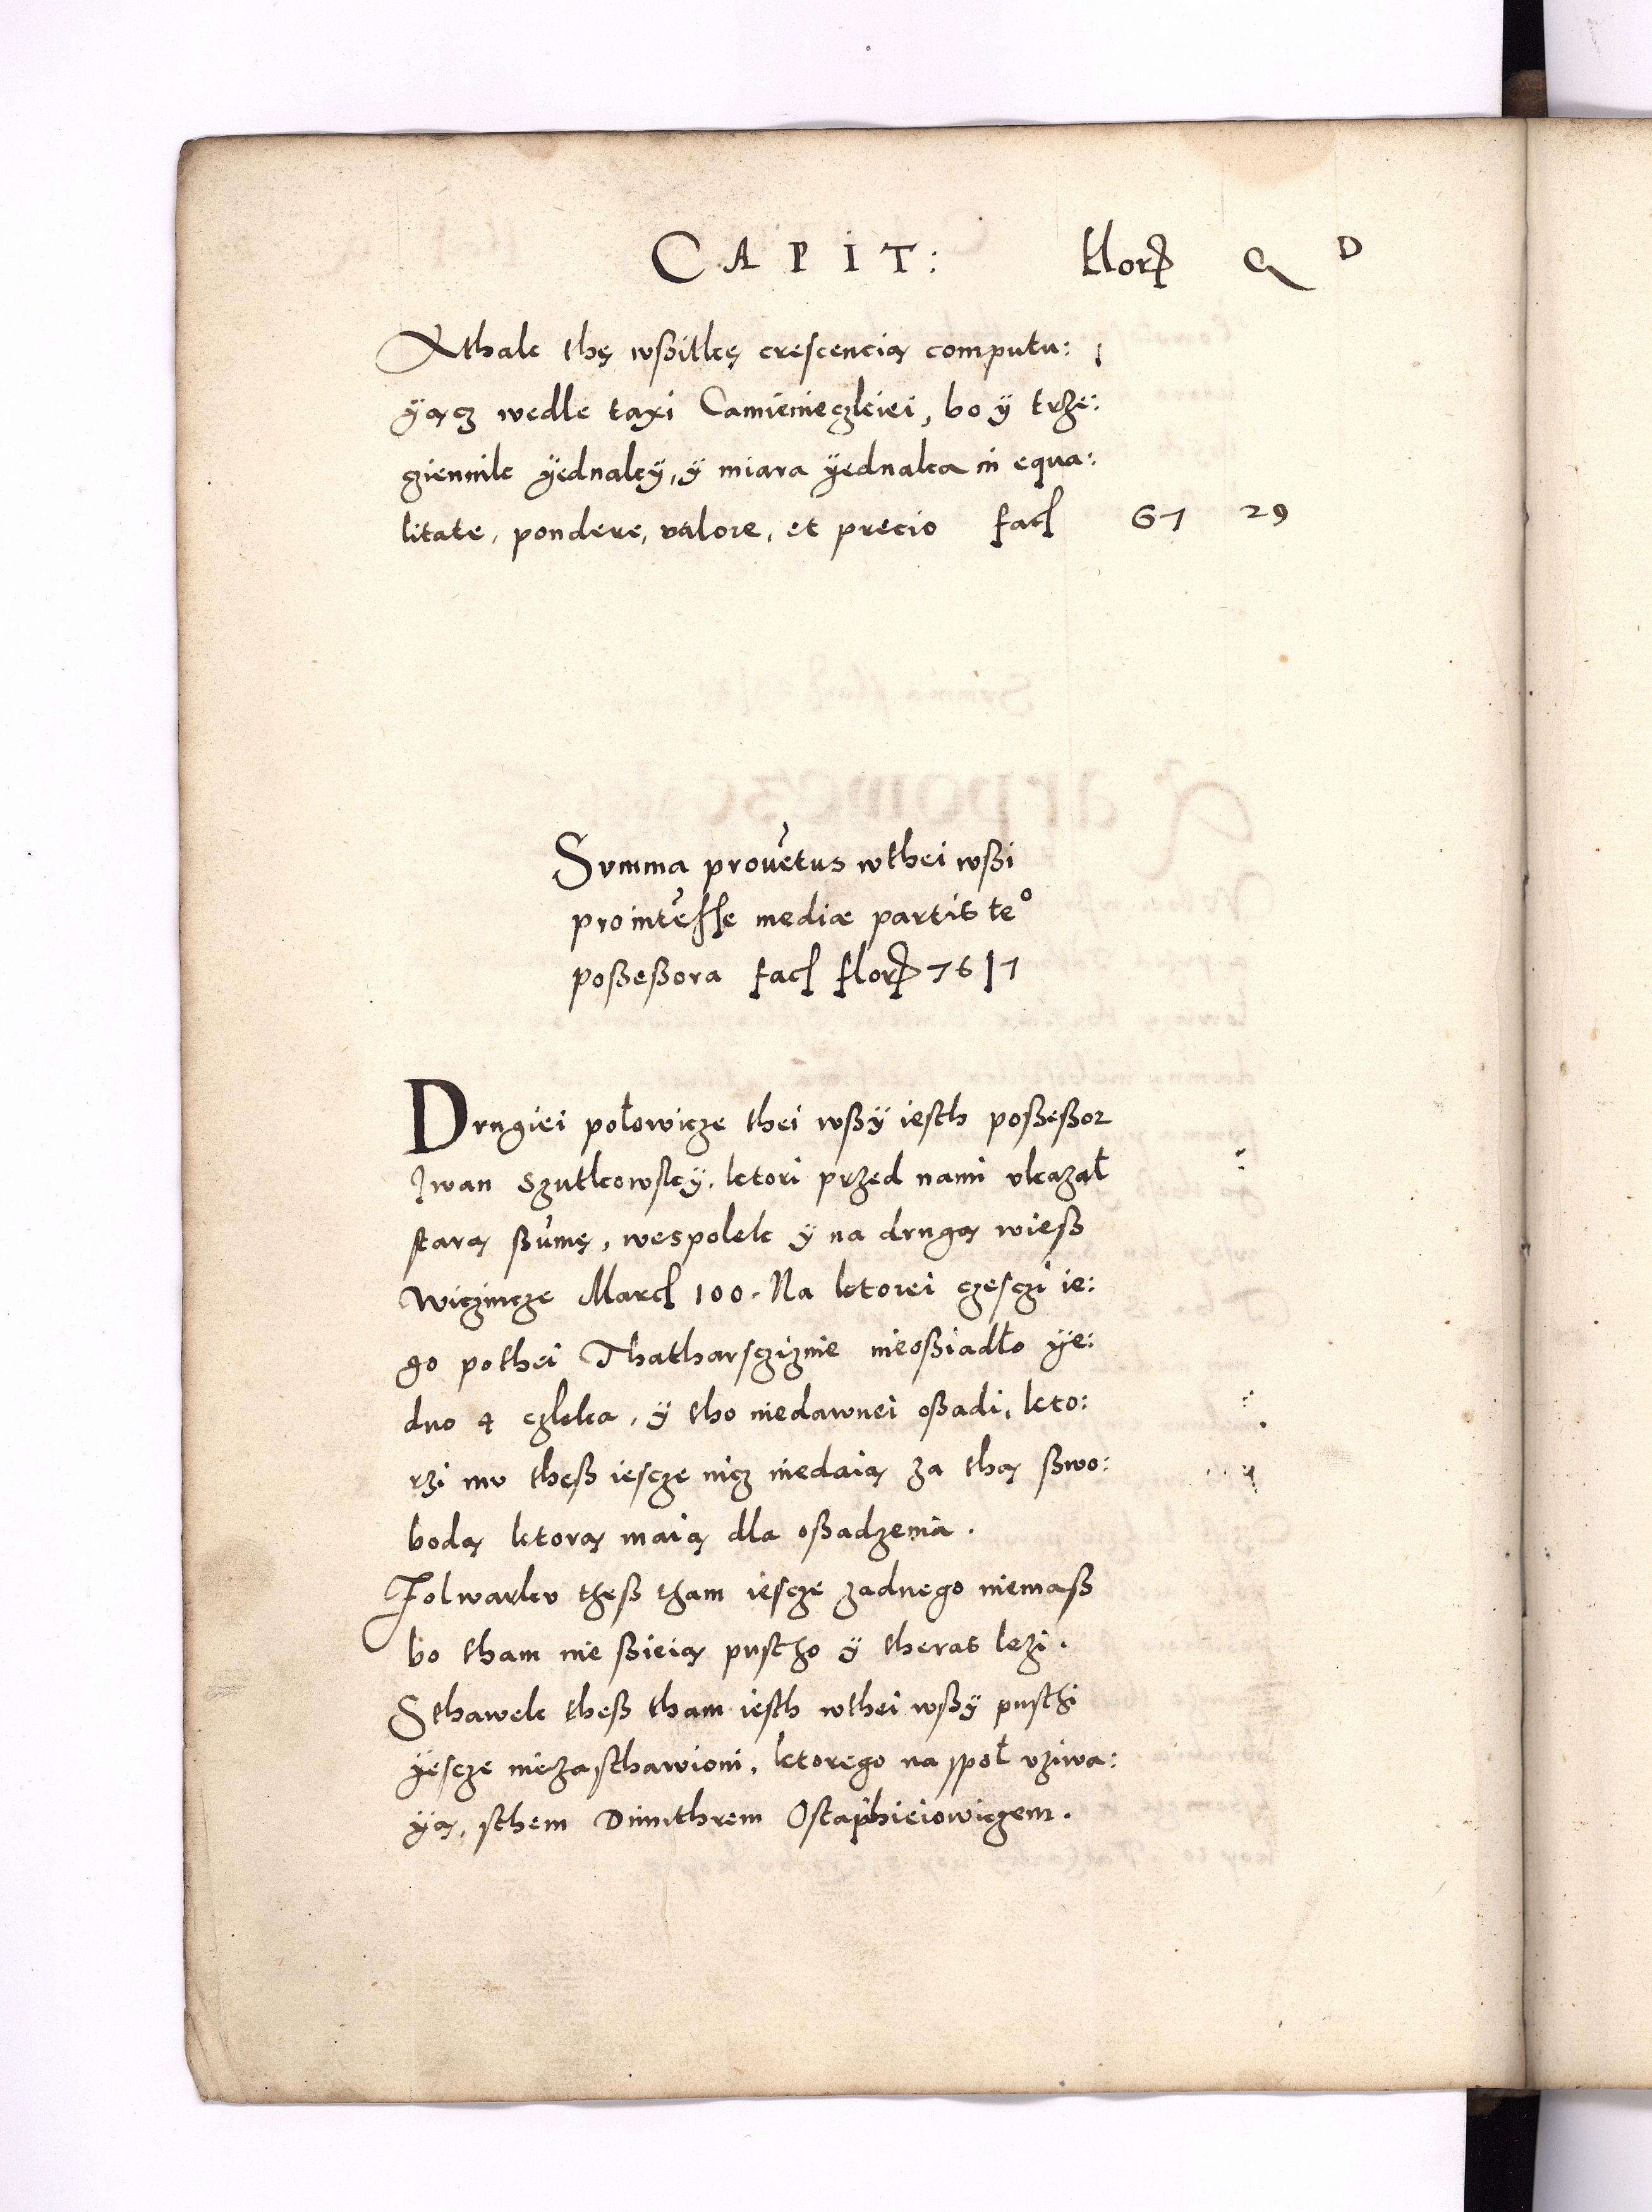 CAPIT: flor. Q D
Athak thę wßitkę crescencią computu:
yącz wedle taxi Camienieczkiei, bo y trze:
ziennik yednaky, y miara yednaka in equa:
litate, pondere, valore, et precio fac 67 29
Summa prouētus wthei wßi
pro intēsse mediæ partis te°
poßeßora fac flor. 76 | 7
Drugiei połowicze thei wßy iesth poßeßor
Iwan Szutkowsky, ktori przed nami vkazał
starą ßūmę, wespolek y na drugą wieß
Wiczincze Marc 100. Na ktorei czesczi ie:
go pothei Thatharscziznie nieoßiadło ye:
dno 4 czleka, y tho niedawnei oßadi, kto:
rzi mv theß iescze nicz niedaią za thą ßwo:
bodą ktorą maią dla oßadzenia.
Folwarkv theß tham iescze zadnego niemaß
bo tham nie ßieią pustho y theras lezi.
Sthawek theß tham iesth wthei wßy pusthi
yescze niezasthawioni, ktorego na społ vziwa:
yą, sthem Dimithrem Ostaphieiowiczem.